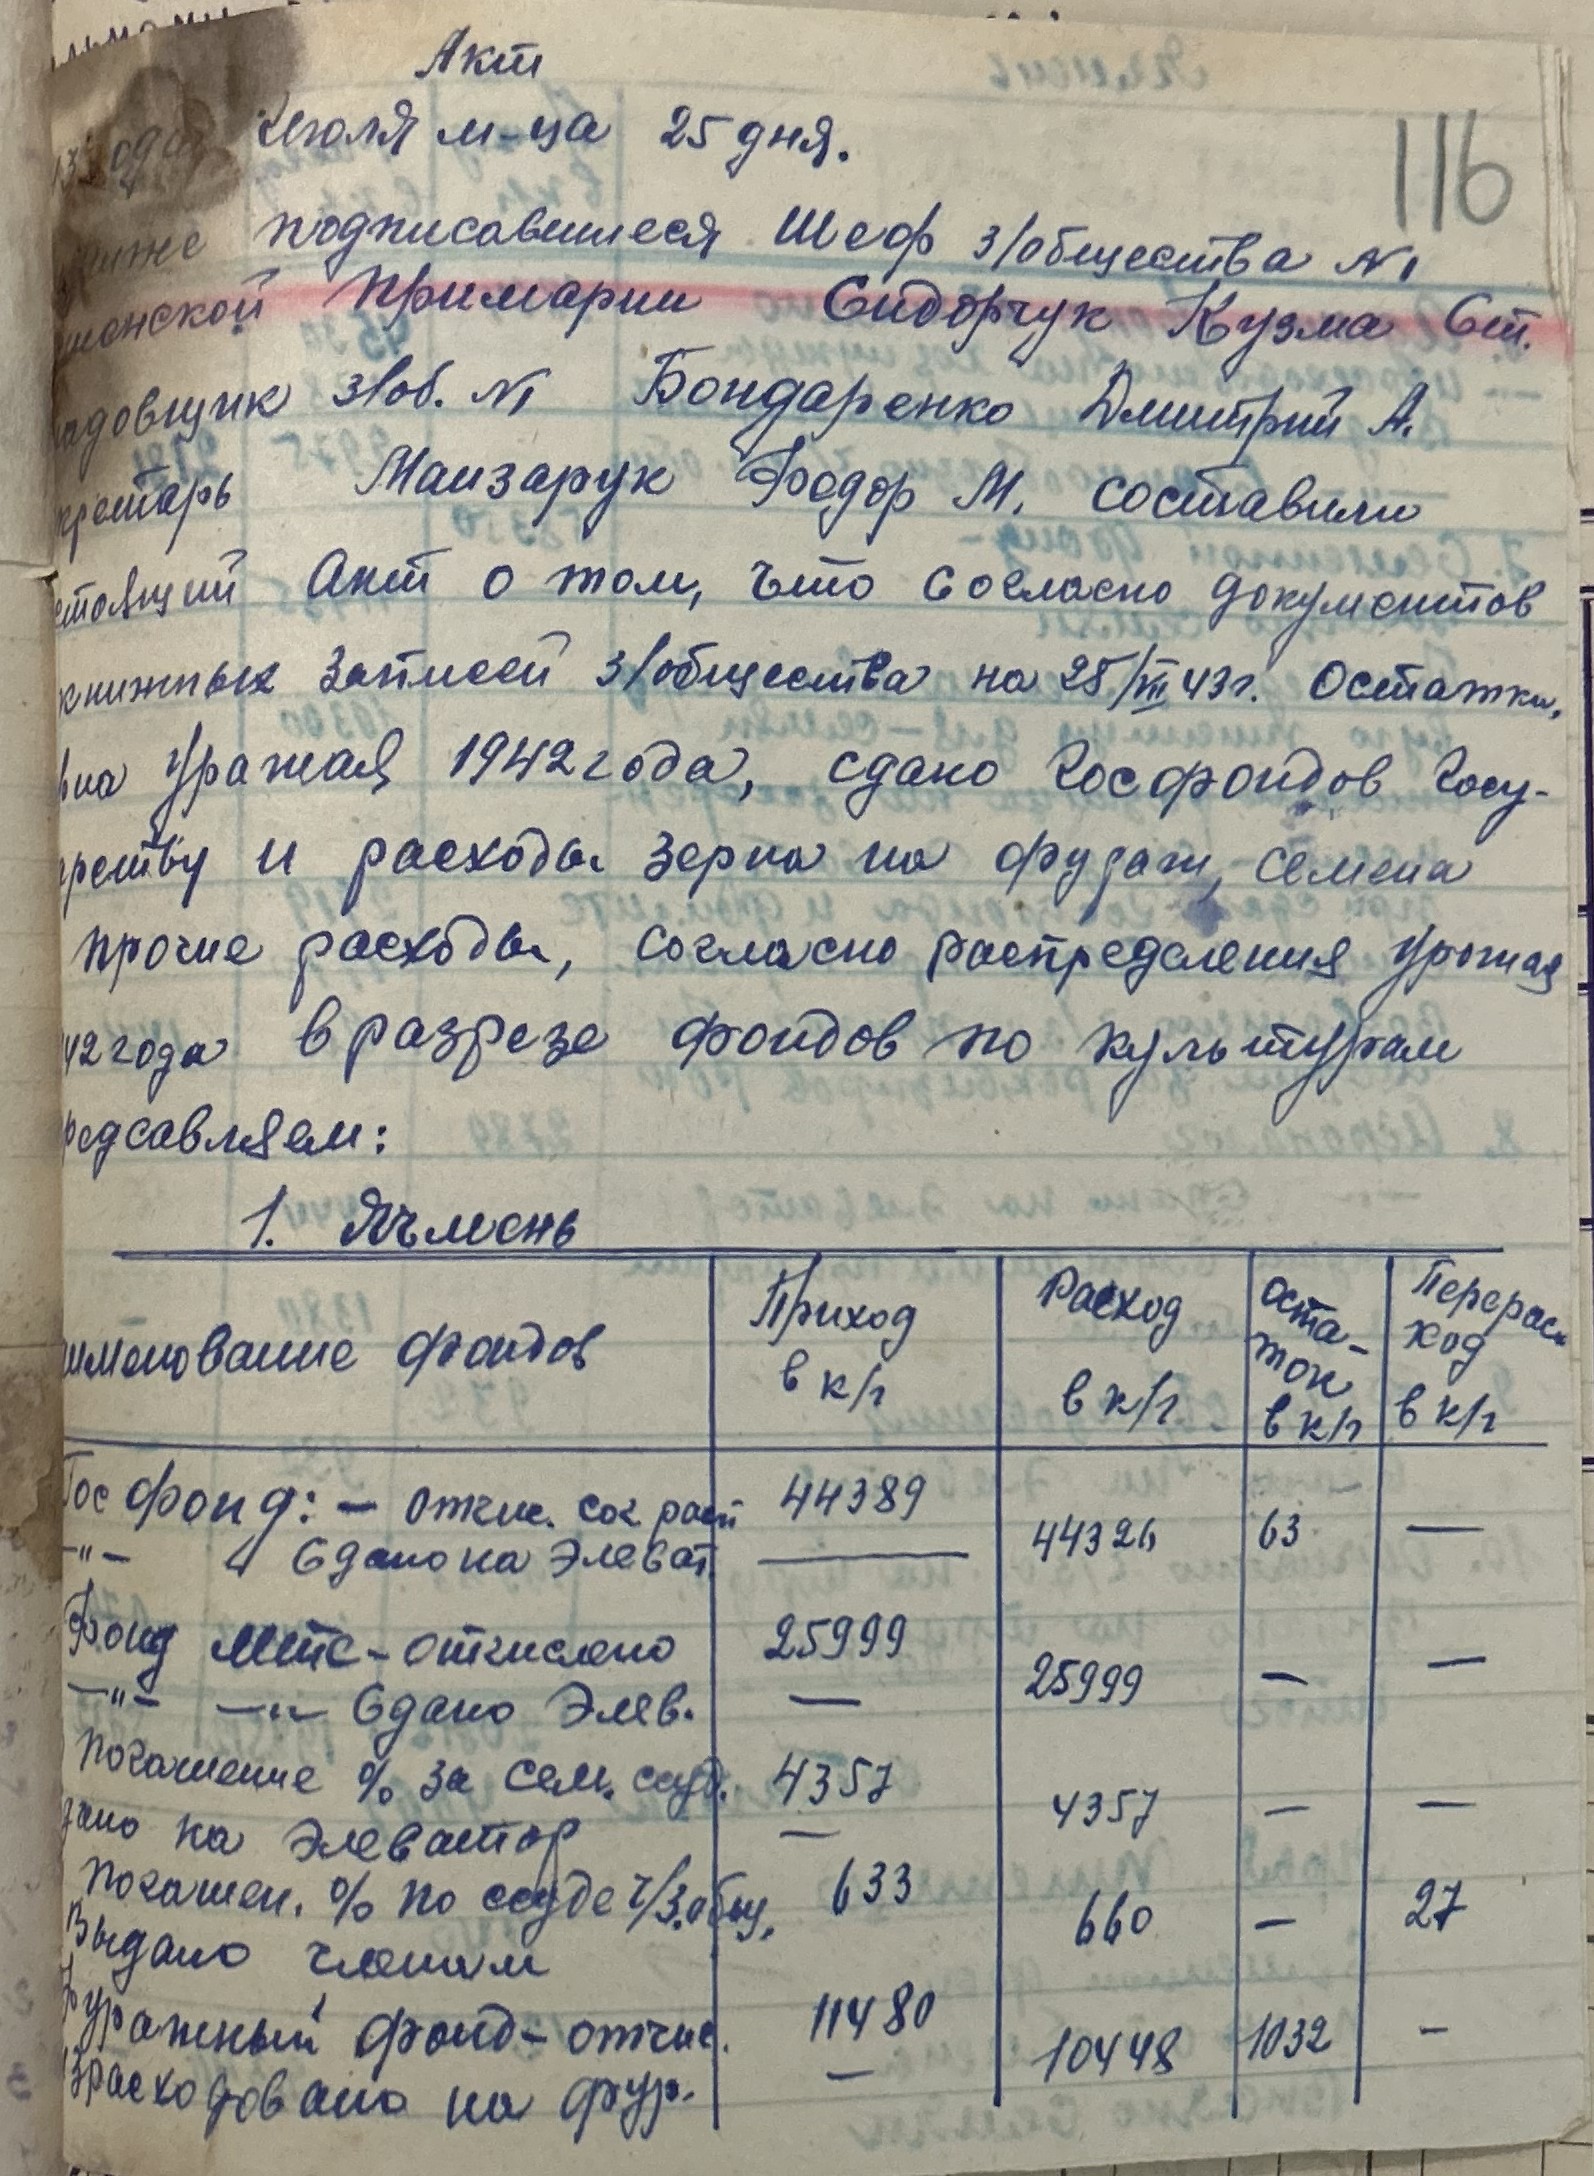 Акт
Июля м-ца 25 дня.
116
ниже подписавшиеся Шеф з/общества №1
Примарии Сидорчук Кузма Ст.
адовщик з/об. №1 Бондаренко Дмитрий А.
кретарь Манзарук Федор М. составили
стоящий Акт о том, что согласно документов
книжных записей з/общества на 25/VII 43г. Остатки,
Уражая 1942 года, сдано Госфондов Госу-
дрству и расходы зерна на фураж, семена
прочие расходы, согласно распределения урожая
42 года в разрезе фондов по культурам
редсавляем:
1. Ячмень
именование фондов
Приход
в к/г
Расход
в к/г
Оста-
ток
в к/г
Перерас
ход
в к/г
Гос фонд: - отчис. сог расп 44389
-"- " Сдано на Элеват. — 44326 63 —
Фонд МТС - отчислено 25999
-"- -"- Сдано Элев. — 25999 — —
Погашение % за сем. ссуд. 4357
дано на Элеватор — 4357 — —
Погашен. % по ссуде з/общ. 633
Выдано членам 660 — 27
Фуражный фонд - отчис. 11480
Израсходовано на фур. — 10448 1032 —